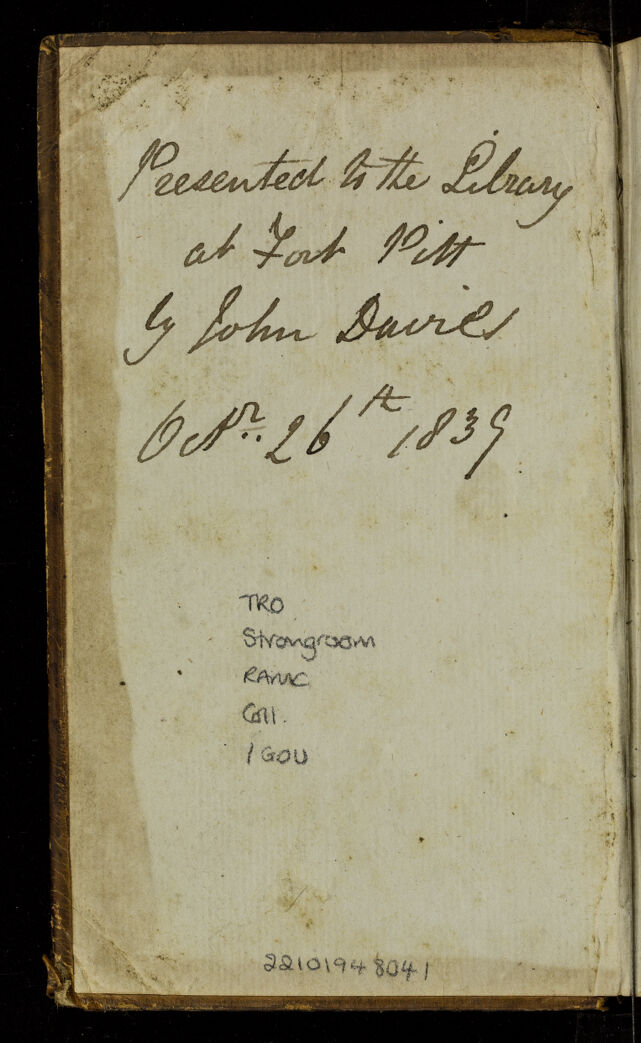 Presented to the Library
at Fort Pitt
by John Davies
Octr. 26th 1839
TRO
Strongroom
RAMC
Coll.
/GOU
22101948041